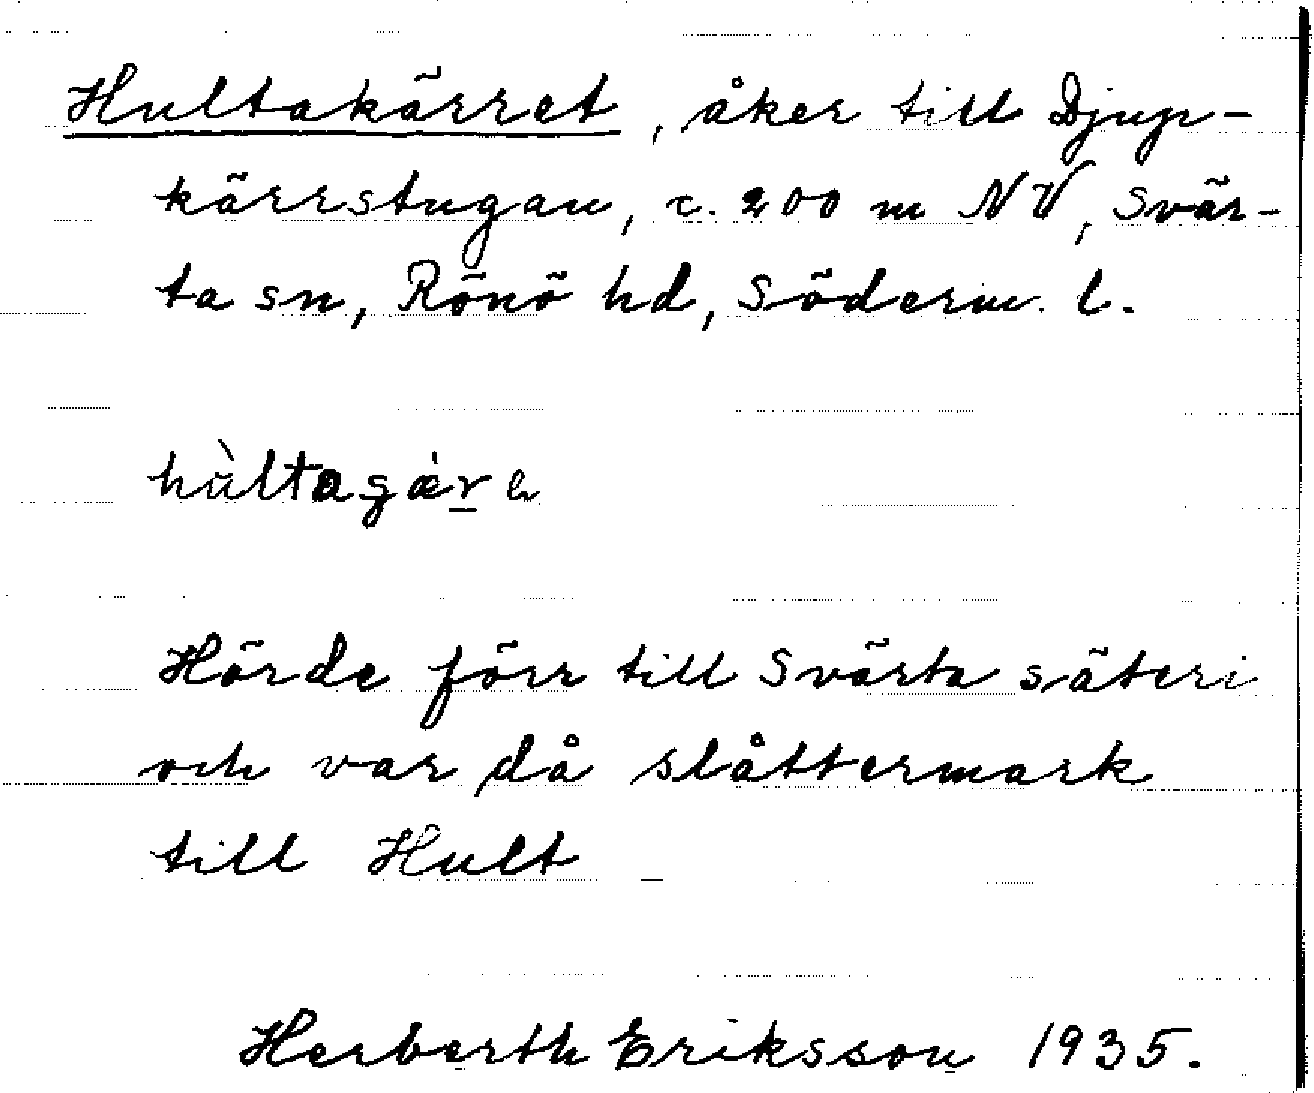 Hultakärret, åker till Djup-
kärrstugan, c. 200 m NV, Svär-
ta sn, Rönö hd, Söderm. l.
hùltagǽrə
Hörde förr till Svärta säteri
och var då slåttermark
till Hult
Herberth Eriksson 1935.